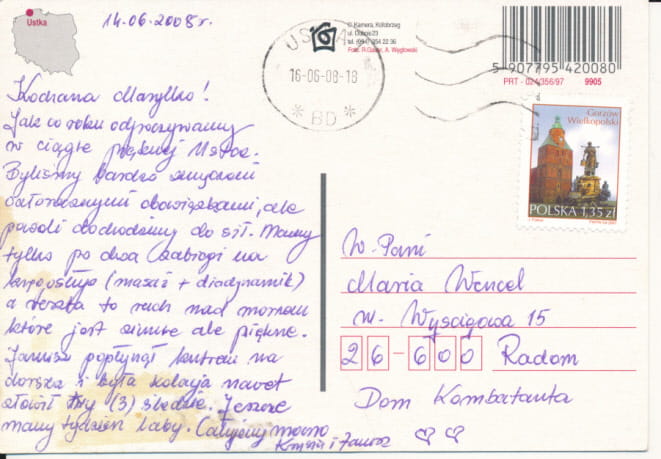 Ustka
14.06.2008r.
© Kamera, Kołobrzeg
USTKA
16-06-08-18
* BD *
5 907795 420080
PRT - 024/356/97 9905
Gorzów
Wielkopolski
POLSKA 1,35 zł
Kochana Marylko!
Jak co roku odpoczywamy
w ciągle pięknej Ustce.
Byliśmy bardzo zmęczeni
całorocznymi obowiązkami, ale
powoli dochodzimy do sił. Mamy
tylko po dwa zabiegi na
kręgosłup (masaż + diadynamik)
a reszta to ruch nad morzem
które jest zimne ale piękne.
Janusz popłynął kutrem na
dorsza i była kolacja nawet
złowił trzy (3) śledzie. Jeszcze
mamy tydzień laby. Całujemy mocno
i Janusz
W. Pani
Maria Wencel
Wyścigowa 15
26-600 Radom
Dom Kombatanta